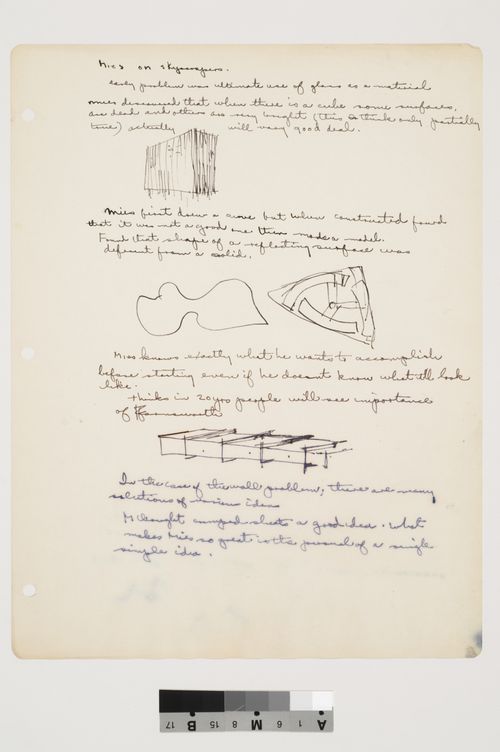 Mies on skyscrapers.
early problem was ultimate use of glass as a material
mies discovered that when there is a cube some surfaces
are dead and others are very bright (this I think only partially
true) actually will vary good deal.
Mies first drew a curve but when constructed found
that it was not a good one then made a model.
Found that shape of a reflecting surface was
different from a solid.
Mies knows exactly what he wants to accomplish
before starting even if he doesnt know what itll look
like.
thinks in 20 yrs people will see importance
of Farnsworth
In the case of the wall problem, there are many
solutions of various ideas
M thought a good idea. What
makes Mies so great is the of a single
simple idea.
17 B 15 8 M 6 1 A